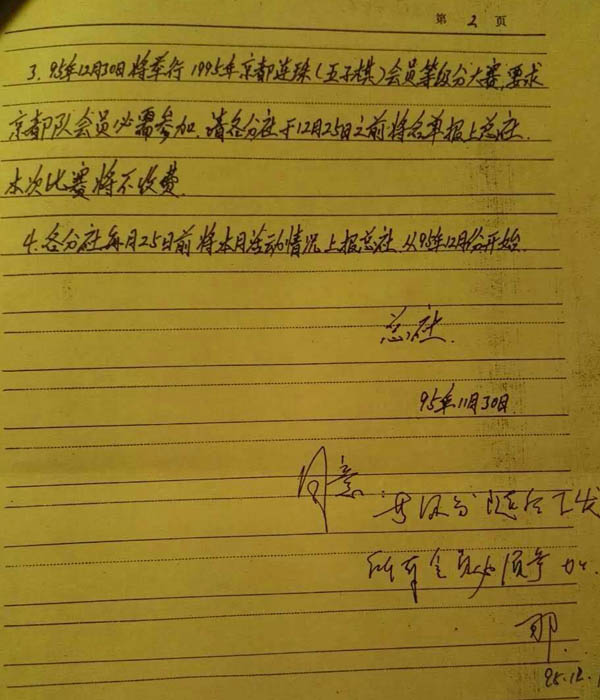 第 2 页
3. 95年12月30日将举行1995年京都连珠（五子棋）会员等级分大赛，要求
京都队会员必需参加，请各分社于12月25日之前将名单报上总社，
本次比赛将不收费。
4. 各分社每月25日前将本月活动情况上报总社，从95年12月份开始。
总社.
95年11月30日
同意.
所有会员必须参加.
那.
95.12.